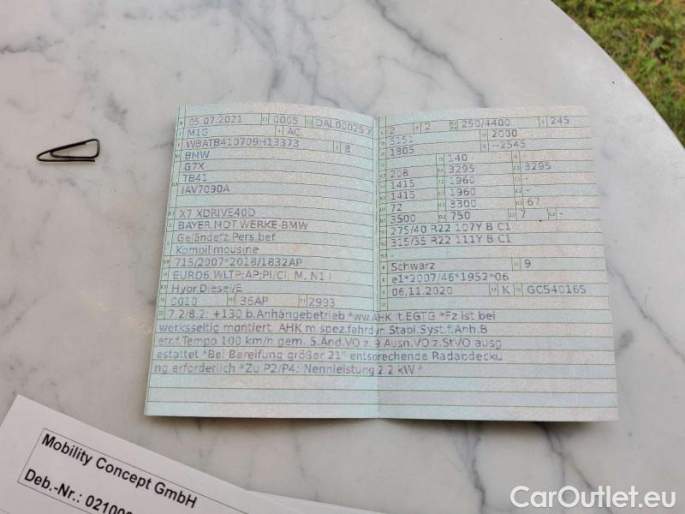 05.07.2021 0005 DAL00025 X
M1G AC
WBATB410709H13373 8
BMW
G7X
TB41
JAV7090A
X7 XDRIVE40D
BAYER.MOT.WERKE-BMW
Geländefz.Pers.bef
Kombilimousine
715/2007*2018/1832AP
EURO6 WLTP;AP;PI/CI; M, N1 I
Hybr.Diesel/E
0010 36AP 2993
2 2 250/4400 245
2000
1805 -2545
140 -
3295 3295
1415 1960 -
1415 1960 -
72 3300 67
3500 750 7 -
275/40 R22 107Y B C1
315/35 R22 111Y B C1
-
Schwarz 9
e1*2007/46*1952*06
06.11.2020 K GC540165
7.2/8.2: +130 b.Anhängebetrieb *ww.AHK lt.EGTG *Fz ist bei
werksseitig montiert. AHK m.spez.fahrdyn Stabi.Syst.f.Anh.B
etr.f.Tempo 100 km/h gem. 5.Änd.VO z.9.Ausn.VO z.StVO ausg
estattet *Bei Bereifung größer 21" entsprechende Radabdecku
ng erforderlich *Zu P2/P4: Nennleistung 2.2 kW *
Mobility Concept GmbH
Deb.-Nr.:
CarOutlet.eu